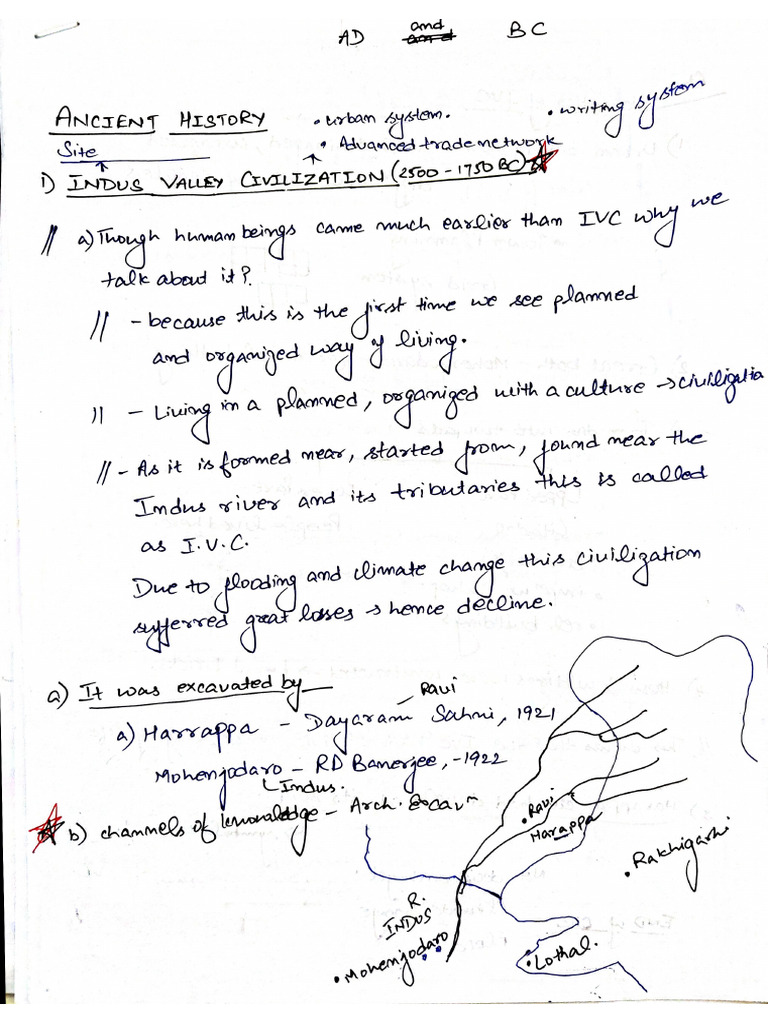 AD and BC
ANCIENT HISTORY • urban system. • writing system
Site • Advanced trade network
1) INDUS VALLEY CIVILIZATION (2500 - 1750 BC)
a) Though human beings came much earlier than IVC why we
talk about it?
- because this is the first time we see planned
and organized way of living.
- Living in a planned, organized with a culture → civilizatio
- As it is formed near, started from, found near the
Indus river and its tributaries this is called
as I.V.C.
Due to flooding and climate change this civilization
sufferred great losses → hence decline.
a) It was excavated by
Ravi
a) Harrappa - Dayaram Sahni, 1921
Mohenjodaro - RD Banerjee, -1922
Indus.
b) channels of knowledge - Arch. Excavn
• Ravi
Harappa
• Rakhigarhi
R.
INDUS
• Mohenjodaro
• Lothal.